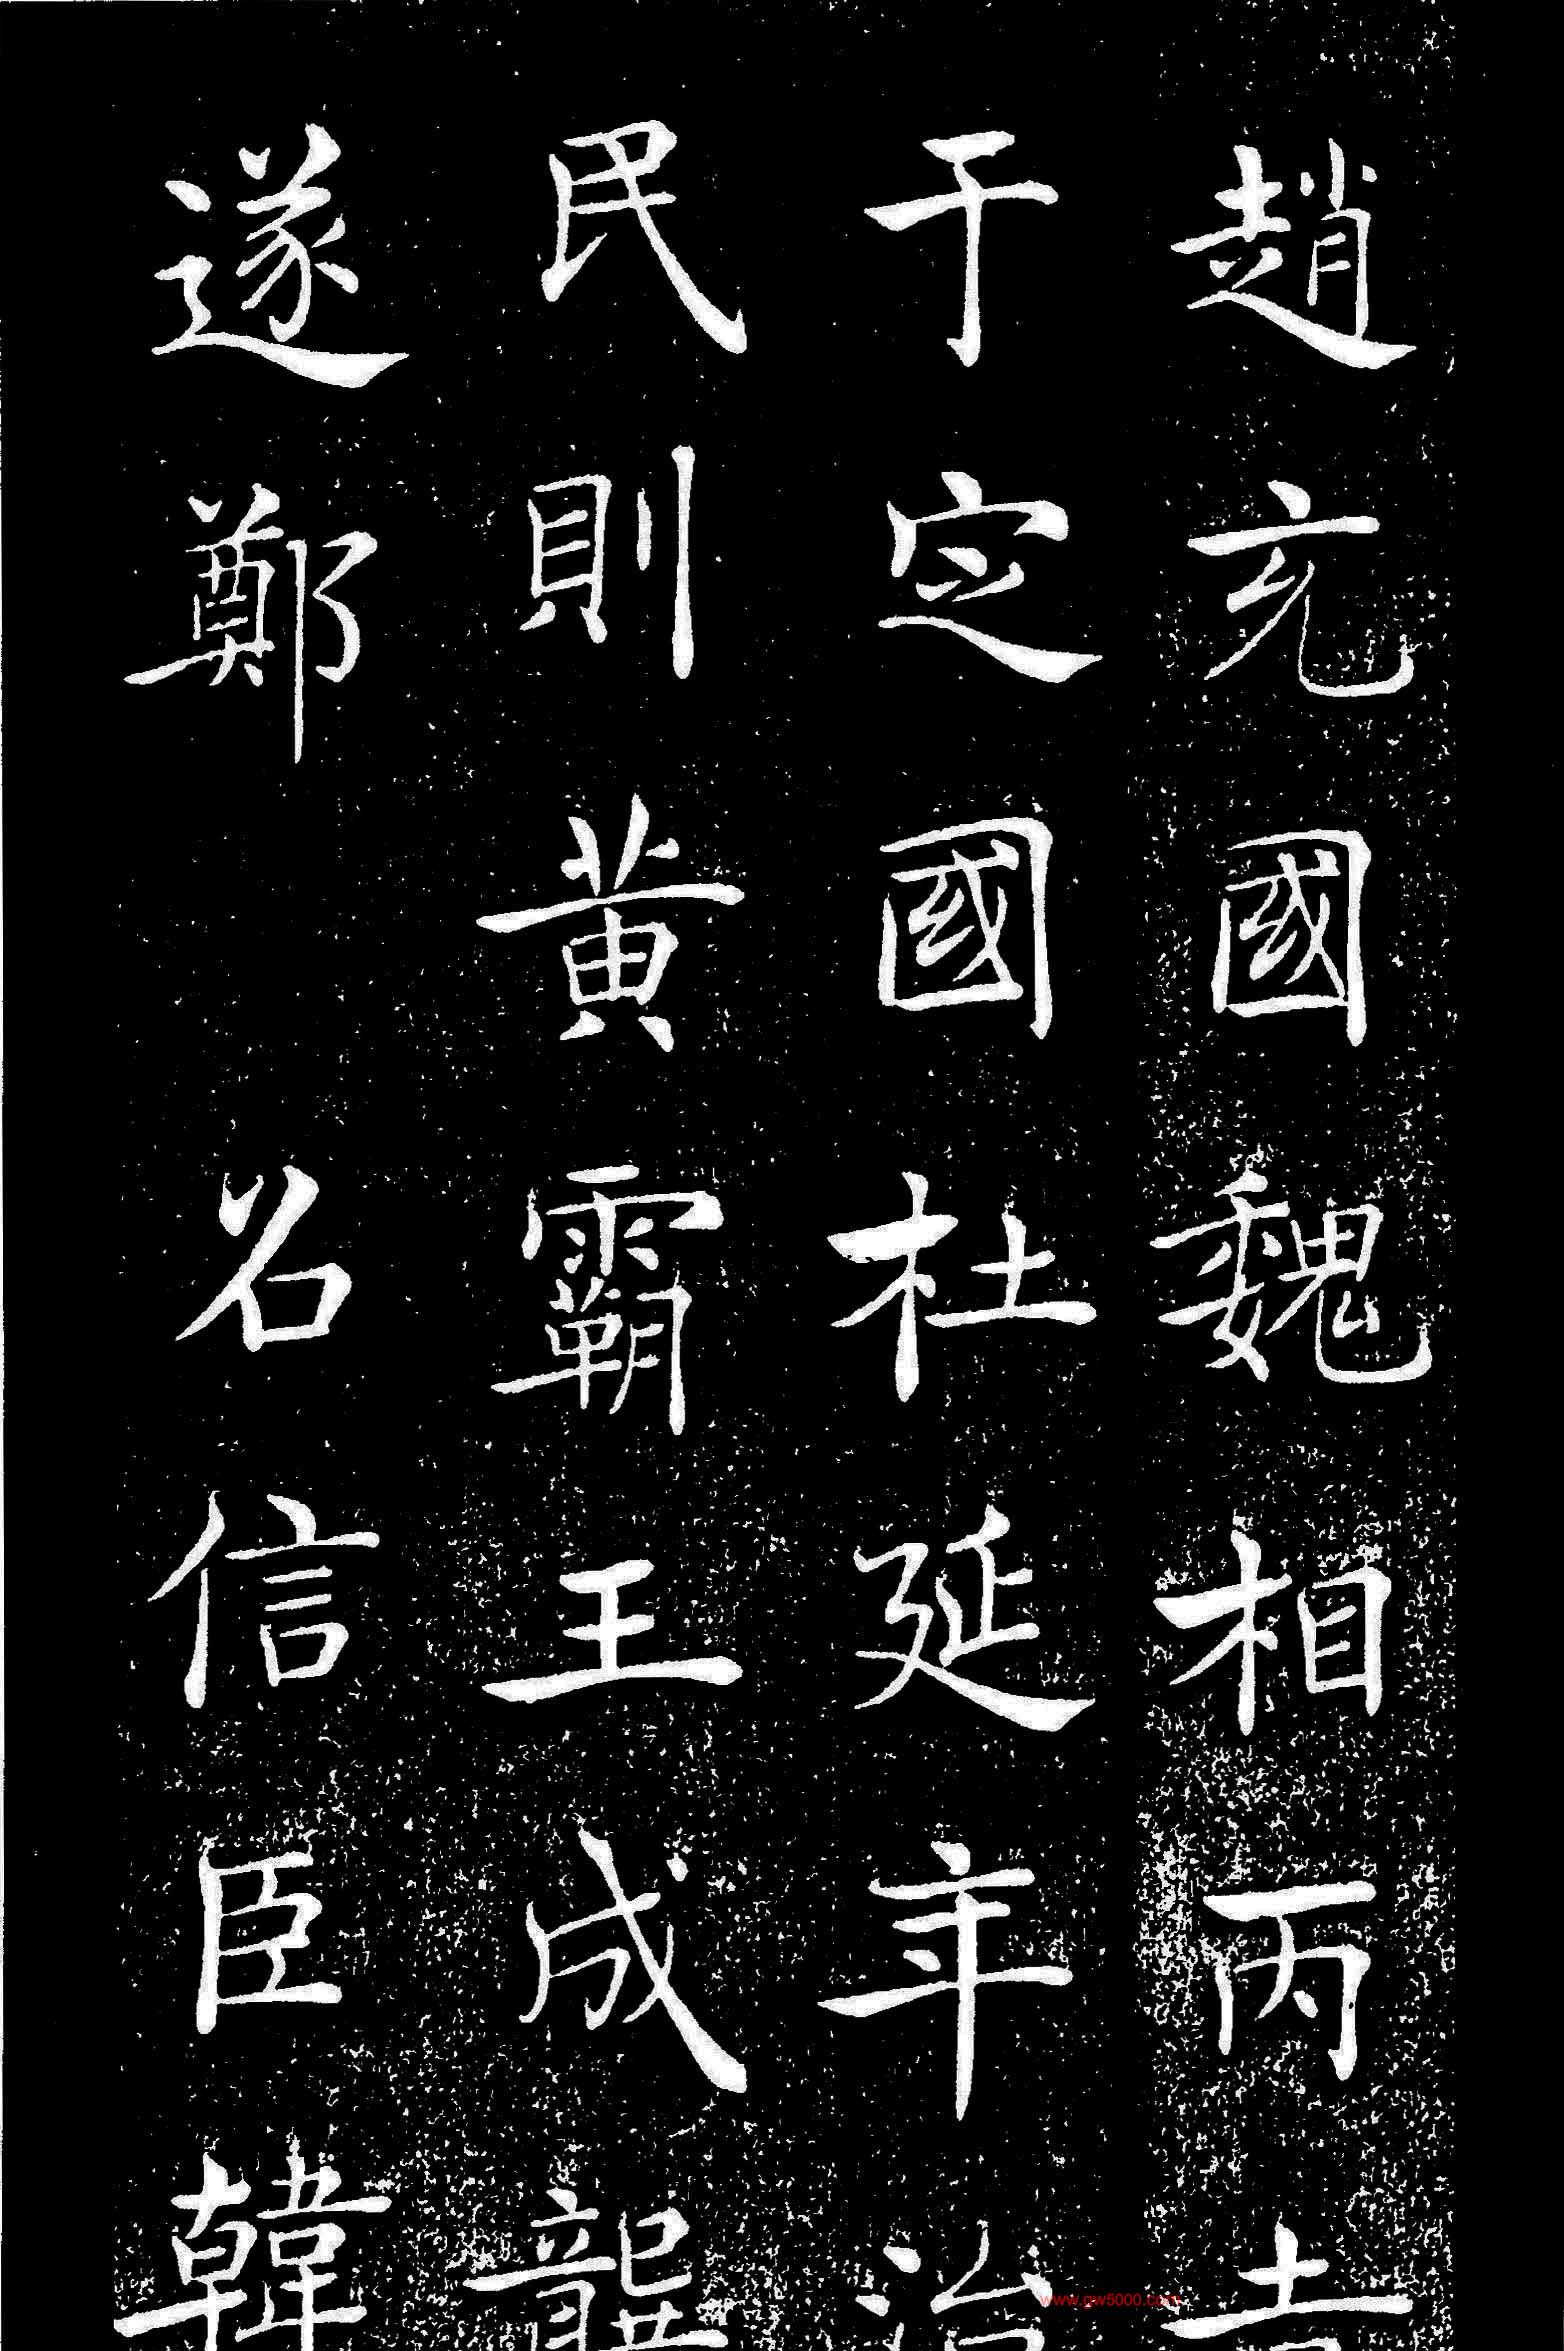 趙充國魏相丙吉
于定國杜延年治
民則黃霸王成龔
遂鄭召信臣韓
www.gw5000.com